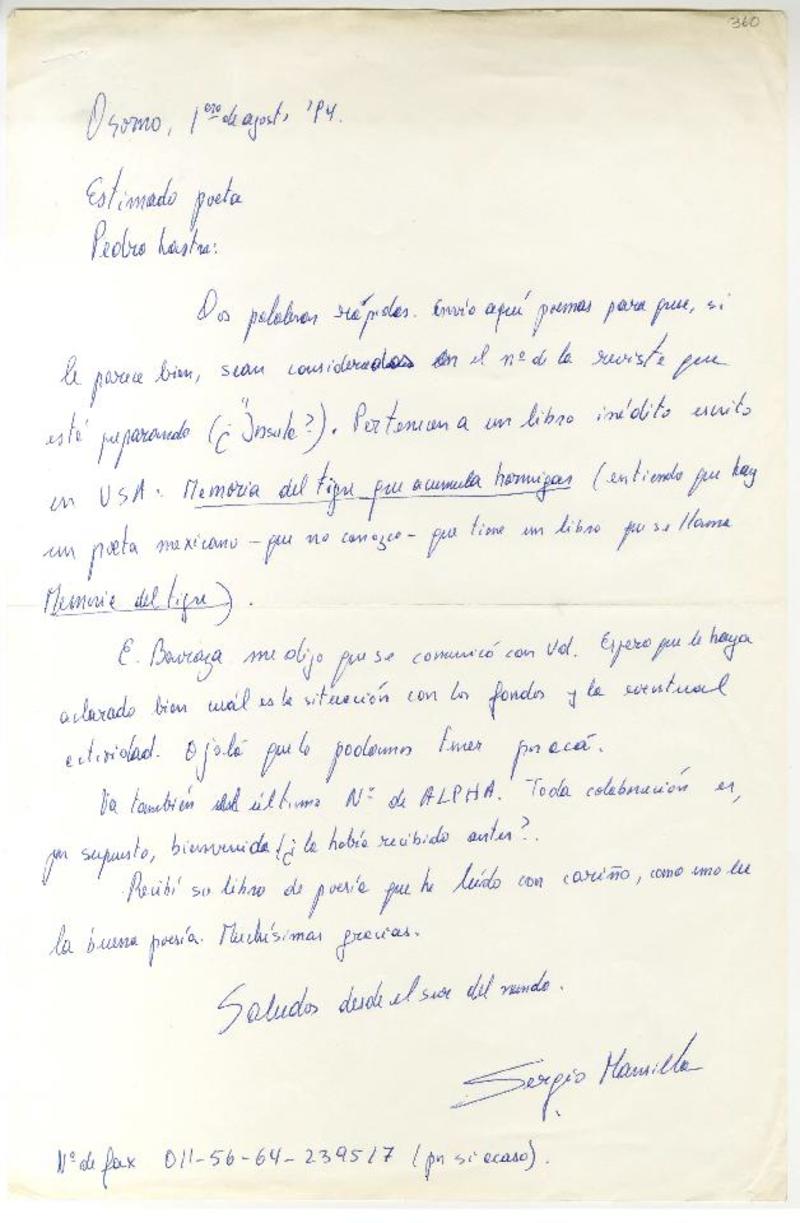 360
Osorno, 1ero de agosto '94.
Estimado poeta
Pedro Lastra:
Dos palabras rápidas. Envío aquí poemas para que, si
le parece bien, sean considerados en el nº de la revista que
está preparando (¿Insula?). Pertenecen a un libro inédito escrito
en USA: Memoria del tigre que acumula hormigas (entiendo que hay
un poeta mexicano - que no conozco - que tiene un libro que se llama
Memoria del tigre).
E. Barraza me dijo que se comunicó con Ud. Espero que le haya
aclarado bien cuál es la situación con los fondos y la eventual
actividad. Ojalá que lo podamos tener por acá.
Va también el último Nº de ALPHA. Toda colaboración es,
por supuesto, bienvenida (¿la había recibido antes?.
Recibí su libro de poesía que he leído con cariño, como uno lee
la buena poesía. Muchísimas gracias.
Saludos desde el sur del mundo.
Sergio Mansilla
Nº de fax 011-56-64-239517 (por si acaso).